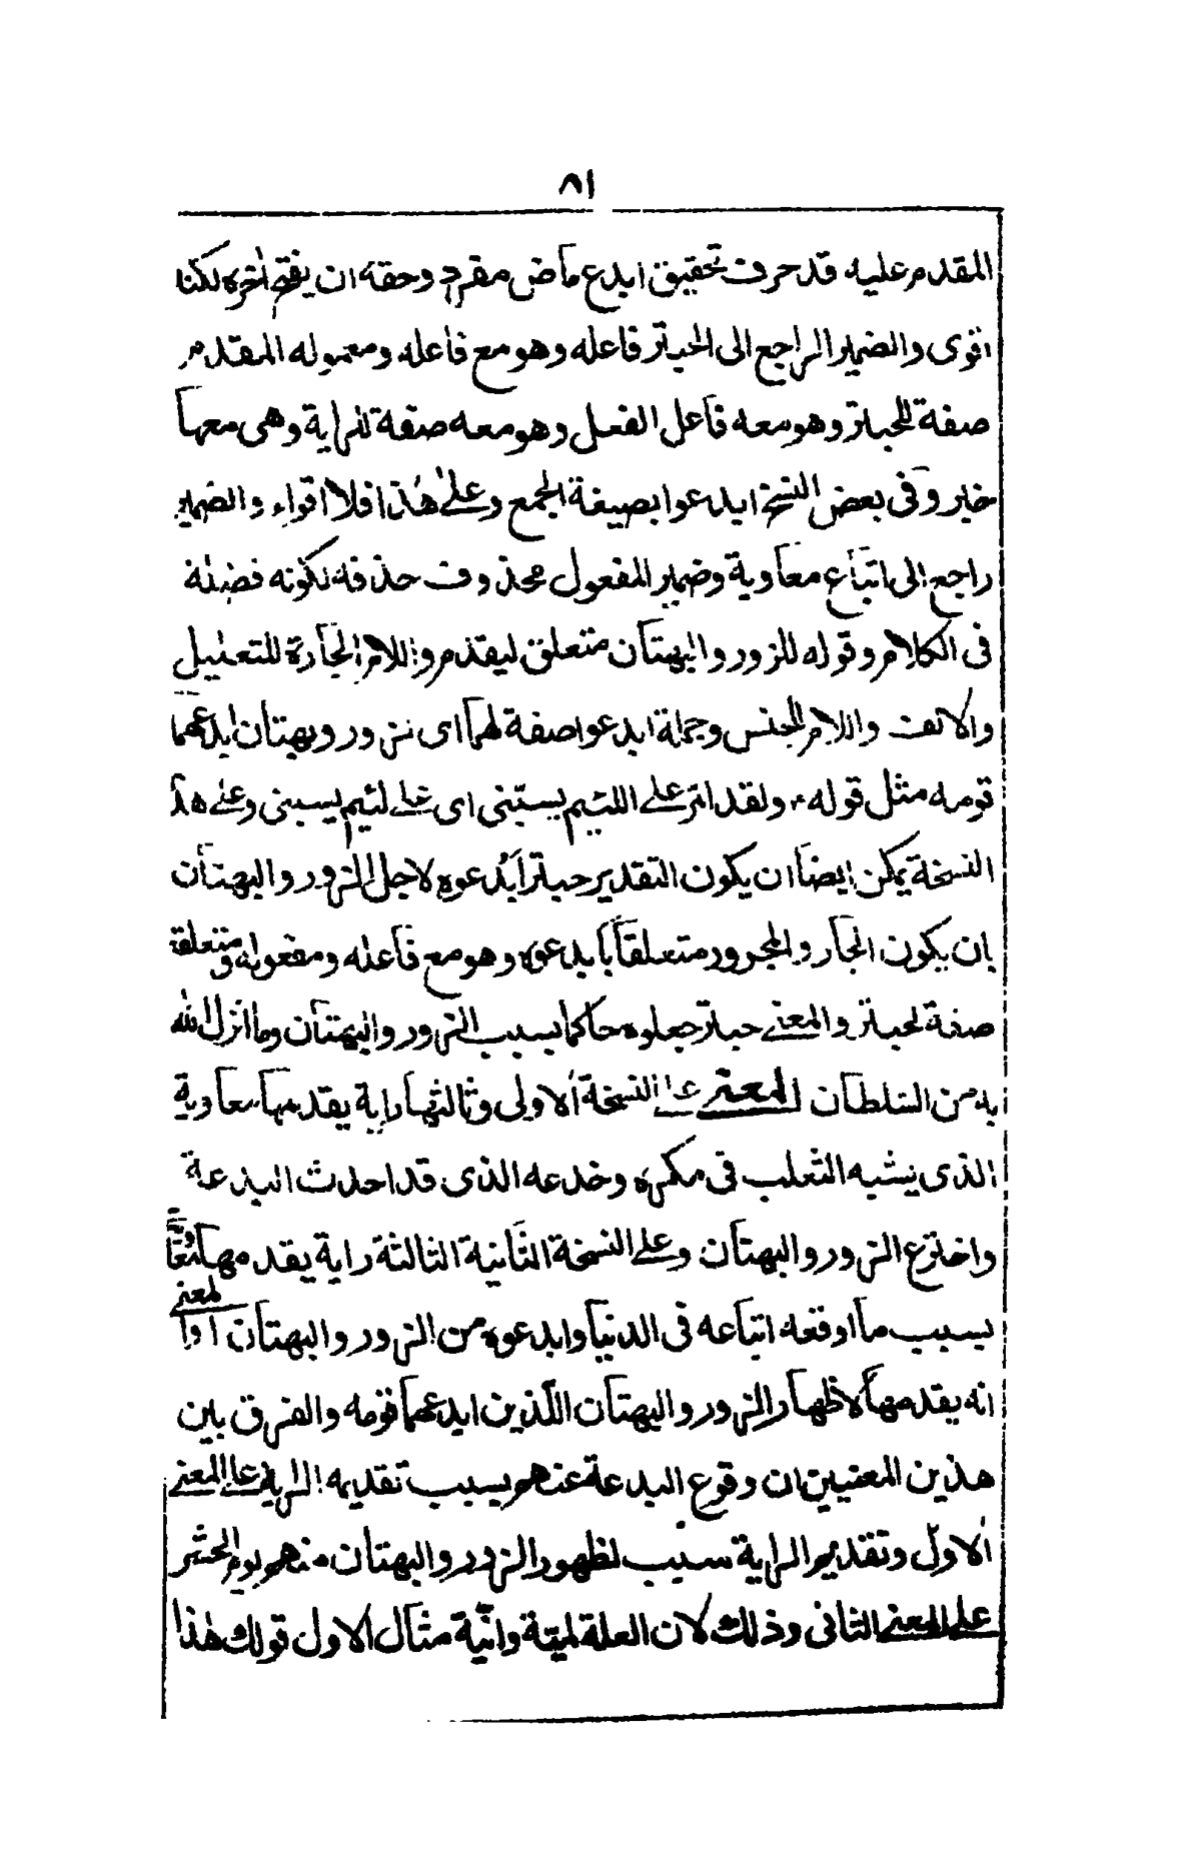 ٨١
المقدم عليه قد حرف تحقيق ابدع ماض مفرد وحقه ان يفتح اٰخره لكنا
اقوى والضمير الراجع الى الحبتر فاعله وهو مع فاعله ومعموله المقدم
صفة للحبتر وهو معه فاعل الفعل وهو معه صفة لراية وهى معها
خبر وفى بعض النسخ ابدعوا بصيغة الجمع وعلى هٰذا فلا اقواء والضمير
راجع الى اتباع معاوية وضمير المفعول محذوف حذفه لكونه فضلة
فى الكلام وقوله للزور والبهتان متعلق ليقدم واللام الجارة للتعليل
والالف واللام للجنس وجملة ابدعوا صفة لهما اى لزور وبهتان ابدعهما
قومه مثل قوله ولقد امر على اللئيم يسبّنى اى على لئيم يسبنى وعلى هذا
النسخة يمكن ايضا ان يكون التقدير حبتر ابدعوه لاجل الزور والبهتان
بان يكون الجار والمجرور متعلقا بابدعوه وهو مع فاعله ومفعوله ومتعلقه
صفة لحبتر والمعنى حبتر جعلوه حاكما بسبب الزور والبهتان وما انزل الله
به من السلطان المعنى على النسخة الاولى وثالثها راية يقدمها معاوية
الذى يشبه الثعلب فى مكره وخدعه الذى قد احدث البدعة
واخترع الزور والبهتان وعلى النسخة الثانية الثالثة راية يقدمها
بسبب ما اوقعه اتباعه فى الدنيا وابدعوه من الزور والبهتان او المعنى
انه يقدمها لاظهار الزور والبهتان اللّذين ابدعهما قومه والفرق بين
هذين المعنيين ان وقوع البدعة عنهم بسبب تقديمه الراية على المعنى
الاول وتقديم الراية سبب لظهور الزور والبهتان منهم يوم الحشر
على المعنى الثانى وذلك لان العلة لمية وانّية مثال الاول قولك هٰذا